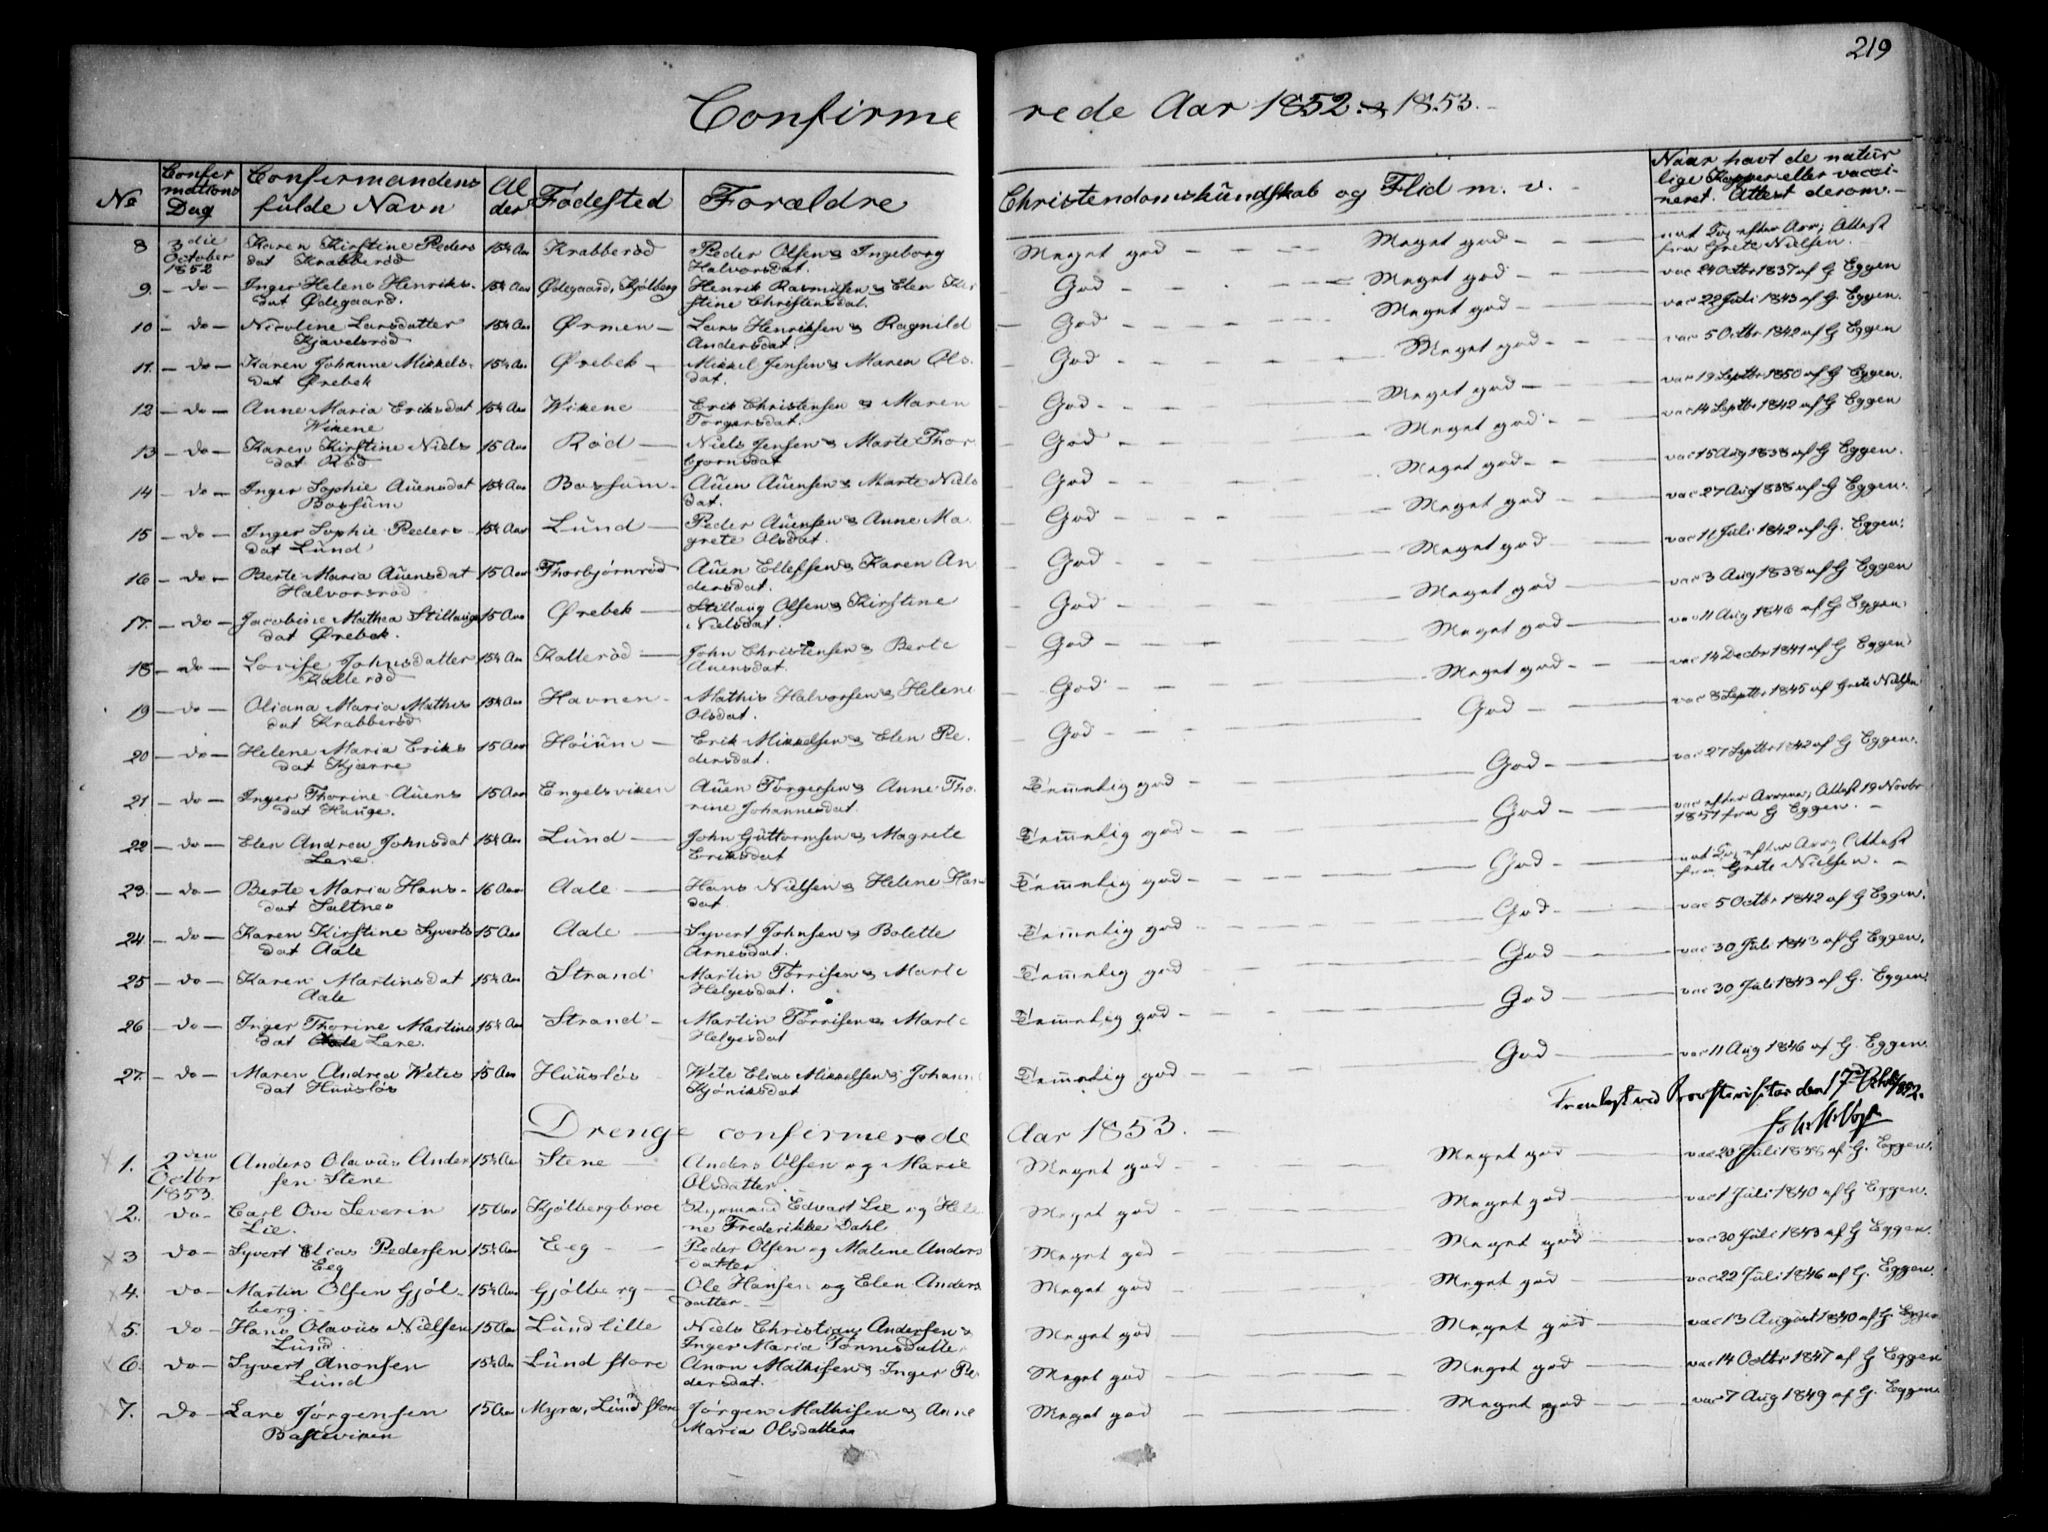 219
Confirmerede Aar 1852 & 1853.
No
Confirmations Dag
Confirmandens fulde Navn
Alder
Fødested
Forældre
Christendomskundskab og Flid m. v.
Naar havt de naturlige Kopper eller vaccineret. Attest derom.
8 3die October 1852 Karen Kirstine Pedersdat Krabberød 15½ Aar Krabberød Peder Olsen & Ingeborg Halvorsdat. Meget god Meget god nat Kop. efter Arr; Attest fra Grete Nielsen.
9. do Inger Helene Henriksdat Ødegaard. 15½ Aar Ødegaard, Kjølberg Henrik Rasmusen & Elen Kirstine Christensdat. God Meget god vac 24 Octbr 1837 af G Eggen
10 do Nicoline Larsdatter Kjavelsrød 15½ Aar Ørmen Lars Henriksen & Ragnild Andersdat. God Meget god vac 22 Juli 1843 af G. Eggen.
11. do Karen Johanne Mikkelsdat Ørebek 15½ Aar Ørebek Mikkel Jensen & Maren Olsdat. God Meget god vac 5 Octbr 1842 af G Eggen
12 do Anne Maria Eriksdat Wikene 15½ Aar Wikene Erik Christensen & Maren Torgersdat. God Meget god vac 19 Septbr 1850 af G Eggen.
13 do Karen Kirstine Nielsdat Rød 15 Aar Rød Niels Jensen & Marte Thorbjornsdat God Meget god vac 14 Septbr 1842 af G Eggen
14 do Inger Sophie Auensdat Bossum 15½ Aar Bossum Auen Auensen & Marte Nielsdat. God Meget god vac 15 Aug 1838 af G Eggen.
15 do Inger Sophie Pedersdat Lund 15½ Aar Lund Peder Auensen & Anne Magrete Olsdat. God Meget god vac 27 Aug 1838 af G Eggen.
16 do Berte Maria Auensdat Halvorsrød 15 Aar Thorbjørnrød Auen Ellefsen & Karen Andersdat. God Meget god vac 11 Juli 1842 af G. Eggen.
17. do Jacobine Mathea Stillaugsdat Ørebek. 15 Aar Ørebek Stillaug Olsen & Kirstine Nielsdat. God Meget god vac 3 Aug 1838 af G Eggen
18 do Lovise Johnsdatter Kallerød 15½ Aar Kallerød John Christensen & Berte Auensdat. God Meget god vac 11 Aug 1846 af G Eggen.
19 do Oliana Maria Mathisdat Krabberød 15½ Aar Havnen Mathis Halvorsen & Helene Olsdat. God Meget god vac 14 Decbr 1841 af G Eggen
20 do Helene Maria Eriksdat Kjærre 15 Aar Høium Erik Mikkelsen & Elen Pedersdat. God God vac 8 Septbr 1845 af Grete Nielsen
21 do Inger Thorine Auensdat Hauge. 15 Aar Engelsviken Auen Torgersen & Anne Thorine Johannesdat. Temmelig god God vac 27 Septbr 1842 af G Eggen.
22 do Elen Andrea Johnsdat Lere. 15½ Aar Lund John Guttormsen & Magrete Eriksdat Temmelig god God vac efter Arrene, Attest 19 Novbr 1851 fra G Eggen.
23. do Berte Maria Hansdat Saltnes 16 Aar Aale Hans Nielsen & Helene Hansdat Temmelig god God nat Kop. efter Arr; Attest fra Grete Nielsen.
24 do Karen Kirstine Syvertsdat Aale 15 Aar Aale Syvert Johnsen & Bolette Arnesdat. Temmelig god God vac 5 Octbr 1842 af G Eggen.
25 do Karen Martinsdat Aale 15½ Aar Strand Martin Torrisen & Marte Helgesdat. Temmelig god God vac 30 Juli 1843 af G Eggen.
26 do Inger Thorine Martinsdat Lere. 15½ Aar Strand Martin Torrisen & Marte Helgesdat Temmelig god God vac 30 Juli 1843 af G. Eggen.
27. do Maren Andrea Wetesdat Huusløs 15 Aar Huusløs Wete Elias Mikkelsen & Johanne Kjøniksdat Temmelig god God vac 11 Aug 1846 af G. Eggen.
Fremlagt ved Provstevisitas den 17 Octbr 1852.
Drenge confirmerede Aar 1853.
1. 2den Octbr 1853. Anders Olavus Andersen Stene 15½ Aar Stene Anders Olsen og Marie Olsdatter Meget god Meget god vac 20 Juli 1838 af G. Eggen.
2. do Carl Ove Severin Lie. 15 Aar Kjølbergbroe Edvart Lie og Helene Frederikke Dahl Meget god Meget god vac 1 Juli 1840 af G Eggen.
3 do Syvert Elias Pedersen Eeg 15½ Aar Eeg Peder Olsen og Malene Andersdatter Meget god Meget god vac 30 Juli 1843 af G. Eggen.
4. do Martin Olsen Gjølberg. 15½ Aar Gjølberg Ole Hansen og Elen Andersdatter Meget god Meget god vac 22 Juli 1846 af G. Eggen.
5. do Hans Olavus Nielsen Lund. 15 Aar Lund lille Niels Christian Andersen & Inger Maria Tønnesdatter Meget god Meget god vac 13 August 1840 af G. Eggen
6. do Syvert Anonsen Lund 15½ Aar Lund store Anon Mathisen & Inger Pedersdat. Meget god Meget god vac 14 Octbr 1847 af G Eggen
7. do Lars Jørgensen Basteviken 15 Aar Myra, Lund store Jørgen Mathisen & Anne Maria Olsdatter Meget god Meget god vac 7 Aug 1849 af G. Eggen.